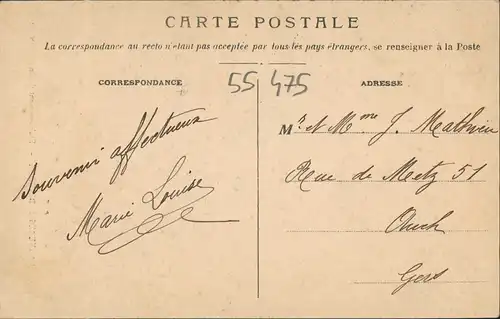 CARTE POSTALE
La correspondance au recto n'étant pas acceptée par tous les pays étrangers, se renseigner à la Poste
CORRESPONDANCE
55 475
ADRESSE
Souvenir affectueux
Marie Louise
Mr et Mme J. Mathieu
Rue de Metz 51
Auch
Gers